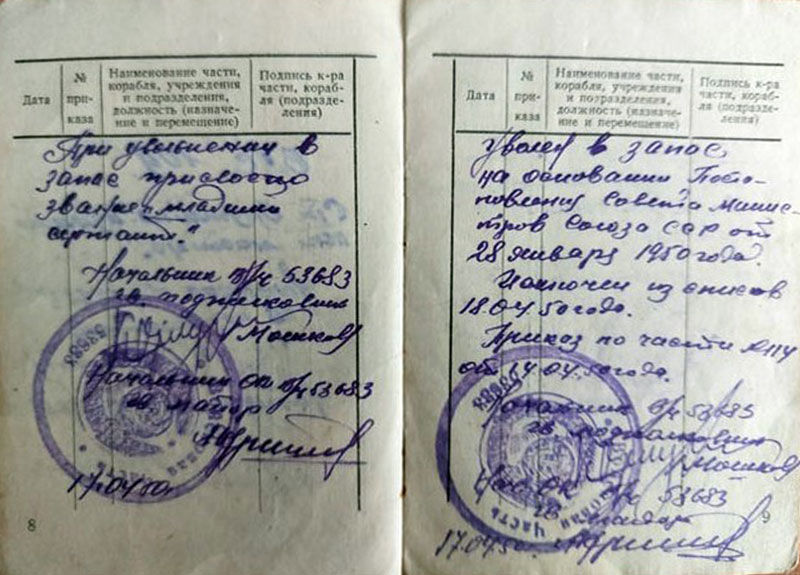 Дата
№ при-каза
Наименование части,
корабля, учреждения
и подразделения,
должность (назначе-
ние и перемещение)
Подпись к-ра
части, кораб-
ля (подразде-
ления)
При увольнении в
запас присвоено
звание „младший
сержант."
Начальник в/ч 53683
гв. подполковник
Мошков
Начальник ОК в/ч 53683
гв. майор
17.04.50.
53683
часть
8
Дата
№ при-каза
Наименование части,
корабля, учреждения
и подразделения,
должность (назначе-
ние и перемещение)
Подпись к-ра
части, кораб-
ля (подразде-
ления)
Уволен в запас
на основании Поста-
новления Совета Минис-
тров Союза ССР от
28 января 1950 года.
Исключен из списков
18.04.50 года.
Приказ по части №114
от 04.50 года.
Начальник в/ч 53683
гв. подполковник
Мошков
Нач. ОК в/ч 53683
гв. майор
17.04.50.
53683
Часть
9